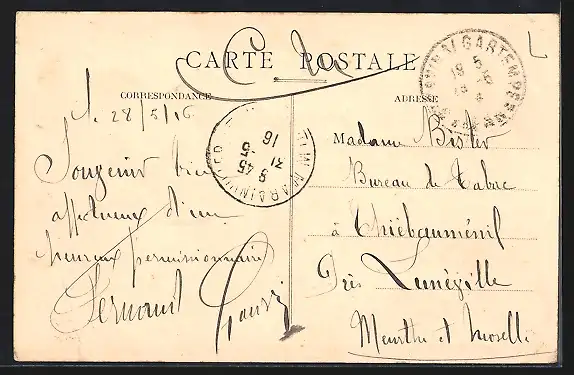 CARTE POSTALE
CORRESPONDANCE
ADRESSE
28/5/16
Souvenir bien
affectueux d'un
heureux permissionnaire
Fernand
Madame Bister
Bureau de Tabac
à Thiébauménil
Près Lunéville
Meurthe et Moselle
9 45
31 5
16